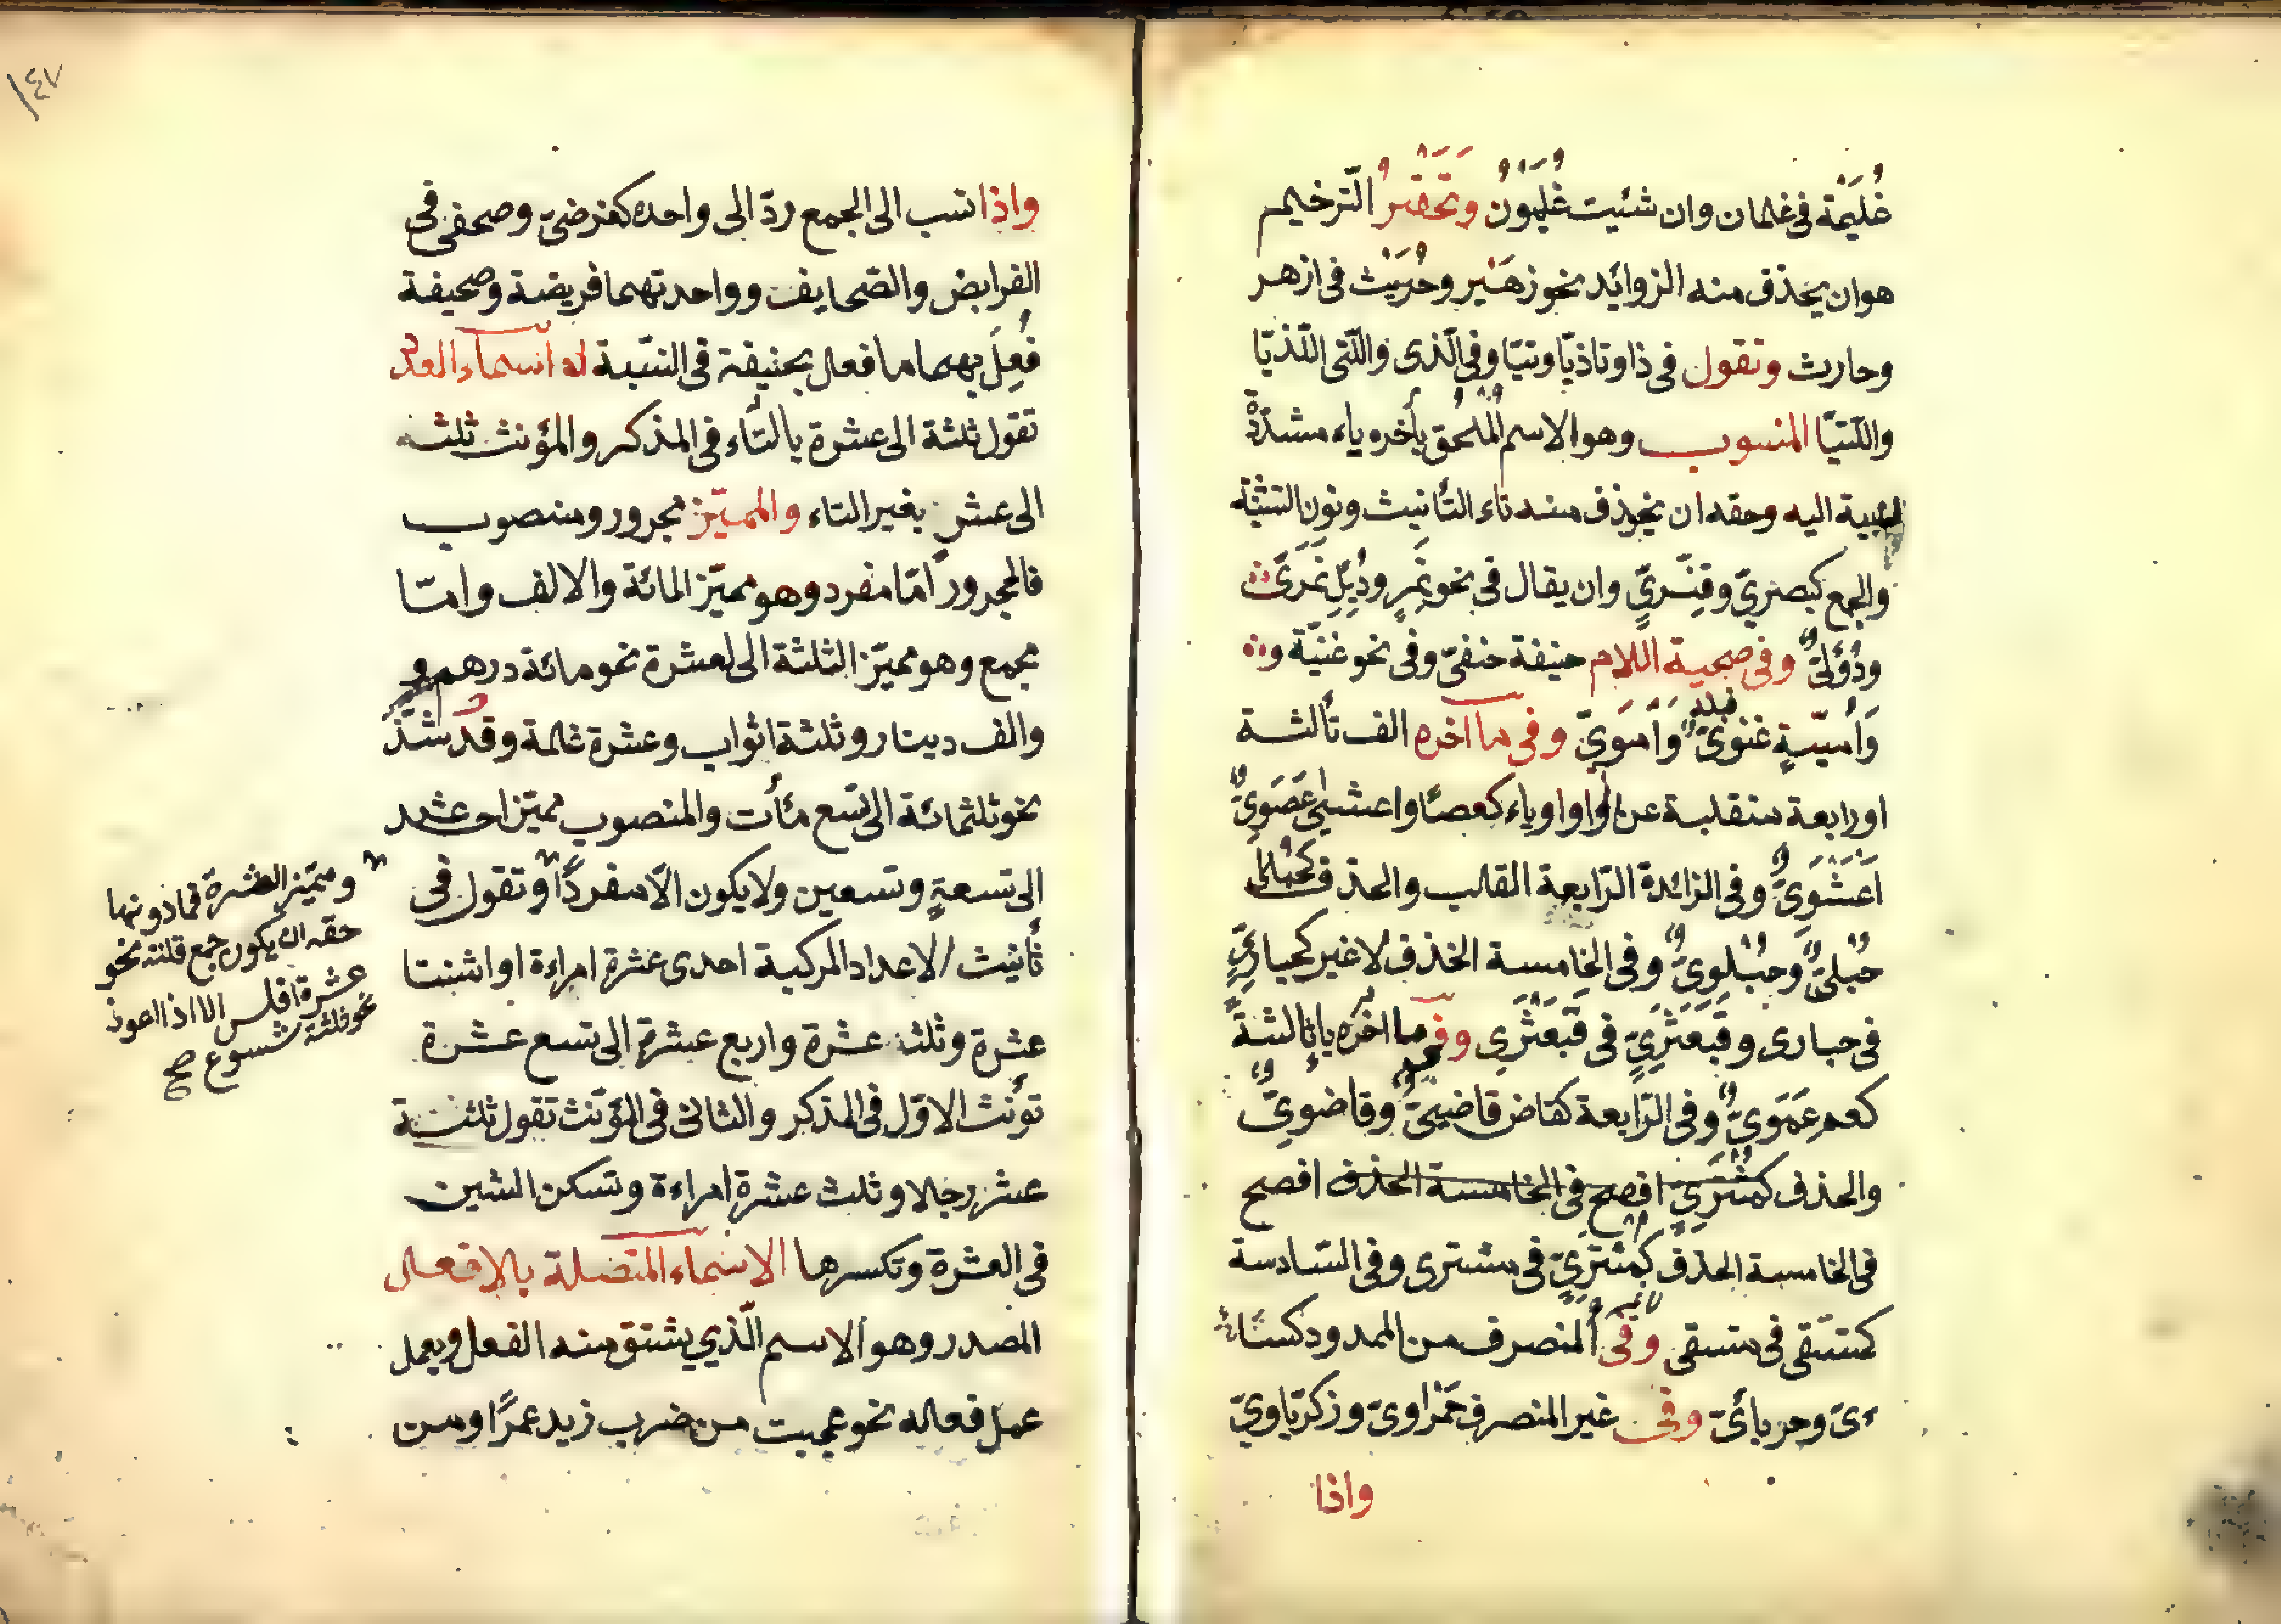 غُلَيْمَة فى غلمان وان شئيت غُلَيّمُونُ وتحقير الترخيم
هو ان يحذف منه الزوائد نحو زهَيْر وحُرَيْث فى ازهر
وحارث وتقول فى ذا وتا ذيّا وتيّا وفى الّذى والّتى اللّذيّا
واللّتيّا المنسوب وهو الاسم المُلحق بأخره ياء مشدّدة
للنسبية اليه وحقه ان يحذف منه تاء التأنيث ونون التثنية
والجمع كبصريّ وقنّسريّ وان يقال فى نحو نَمِرٍ ودُئِلٍ نَمَرىّ
ودُؤَلىّ وفى صحيية اللام حنيفة حنفىّ وفى نحو غنيّة و
وَأُميّيةٍ غنَوىّ وَأَمَوىّ وفى ما اخره الف ثالثة
او رابعة منقلبة عن الواو او ياء كعصًا واعشىٰ عَصَوِىّ
اَعْشَوِىّ وفى الزائدة الرّابعة القلب والحذف كحبلى
حُبْلىّ وحُبْلوِىّ وفى الخامسة الحذف لا غير كحباريّ
فى حبارى وقَبَعْثَرِيّ فى قَبَعْثَرى وفى ما اخره ياء ثالثة
كعمٍ عَمَوىّ وفى الرّابعة كقاض قاضيىّ وقاضوىّ
والحذف كمشترىّ افصح فى الخامسة الحذف افصح
فى الخامسة الحذف كمُشْتَرِىّ فى مشترى وفى السّادسة
كمستقى فى مستقى وفى المنصرف من الممدود كساء
ءىّ وحربائىّ وفى غير المنصرف حَمْراوىّ وزكرّياوىّ
واذا
١٤٧
واذا نسب الى الجمع ردّ الى واحده كفرضىّ وصحفى فى
الفرايض والصّحايف وواحدتهما فريضة وصحيفة
فُعِلَ بهما ما فعل بحنيفة فى النسّبة له اسماء العدد
تقول ثلثة الى عشرة بالتّاء فى المذكر والمؤنث ثلث
الى عشر بغير التاء والمميّز مجرور ومنصوب
فالمجرور امّا مفرد وهو مميّز المائة والالف وامّا
مجمع وهو مميّز الثلثة الى لعشرة نحو مائة درهم و
والف دينار وثلثة اثواب وعشرة غلمة وقد شذّ
نحو ثلثمائة الى تسع مئات والمنصوب مميّز احد عشر
الى تسعةٍ وتسعين ولا يكون الّا مفردًا وتقول فى
تأنيث الاعداد المركبة احدى عشرة امراءة او اثنتا
عشرة وثلث عشرة واربع عشرة الى تسع عشرة
تؤنث الاوّل فى المذكر والثانى فى المؤنّث تقول ثلثة
عشر رجلا وثلث عشرة امراءة وتسكن الشين
فى العشرة وتكسرها الاسماء المتّصلة بالافعال
المصدر وهو الاسم الّذي يشتق منه الفعل ويعمل
عمل فعاله نحو عجبت من ضرب زيد عمرًا ومن
ومميّز العشرة فما دونها
حقه ان يكون جمع قلته نحو
عشرة افلس الا اذا اعوز
نحو ثلثة شسوع صح